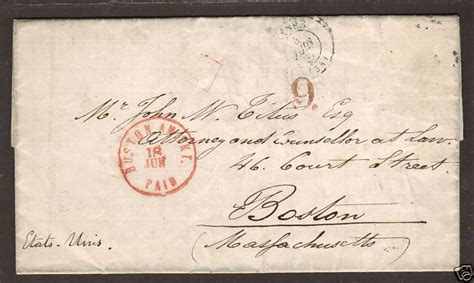 9.
Mr. John W. Titus Esq
Attorney and Counsellor at Law.
46. Court Street.
Boston
(Massachusetts)
Etats-Unis.
BOSTON AM. PKT.
18
JUN
PAID